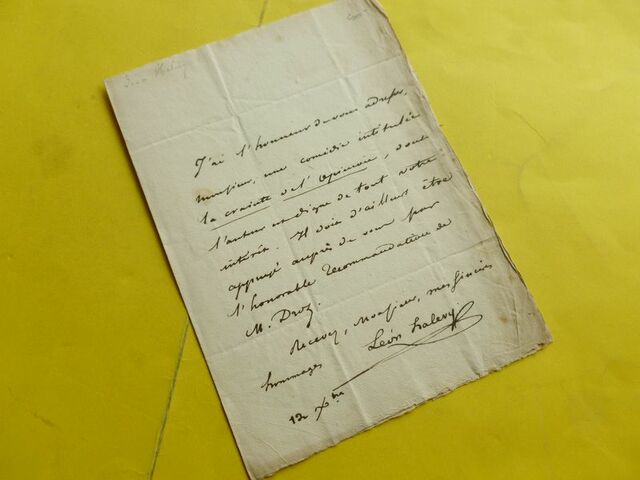 J'ai l'honneur de vous adresser,
monsieur, une comédie intitulée
la crainte de l'opinion, dont
l'auteur est digne de tout votre
intérêt. Il doit d'ailleurs être
appuyé auprès de vous par
l'honorable recommandation de
M. Droz.
Recevez, Monsieur, mes sincères
hommages
Léon halevy
12 Xbre